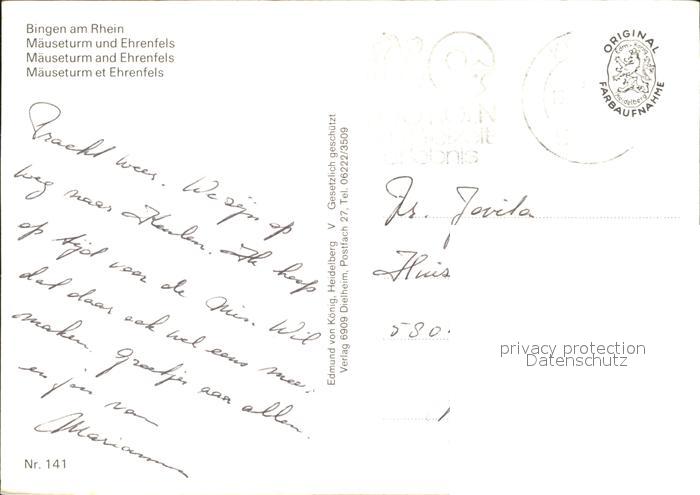 Bingen am Rhein
Mäuseturm und Ehrenfels
Mäuseturm and Ehrenfels
Mäuseturm et Ehrenfels
ORIGINAL
FARBAUFNAHME
Heidelberg
Pracht weer. We zijn op
weg naar Keulen. Ik hoop
op tijd voor de Mis. Wil
dat daar ook wel eens mee
maken. Groetjes aan allen.
en jou van
Marianne
Nr. 141
Edmund von König, Heidelberg V Gesetzlich geschützt
Verlag 6909 Dielheim, Postfach 27, Tel. 06222/3509
Zr. Jovita
Huis
580
privacy protection
Datenschutz